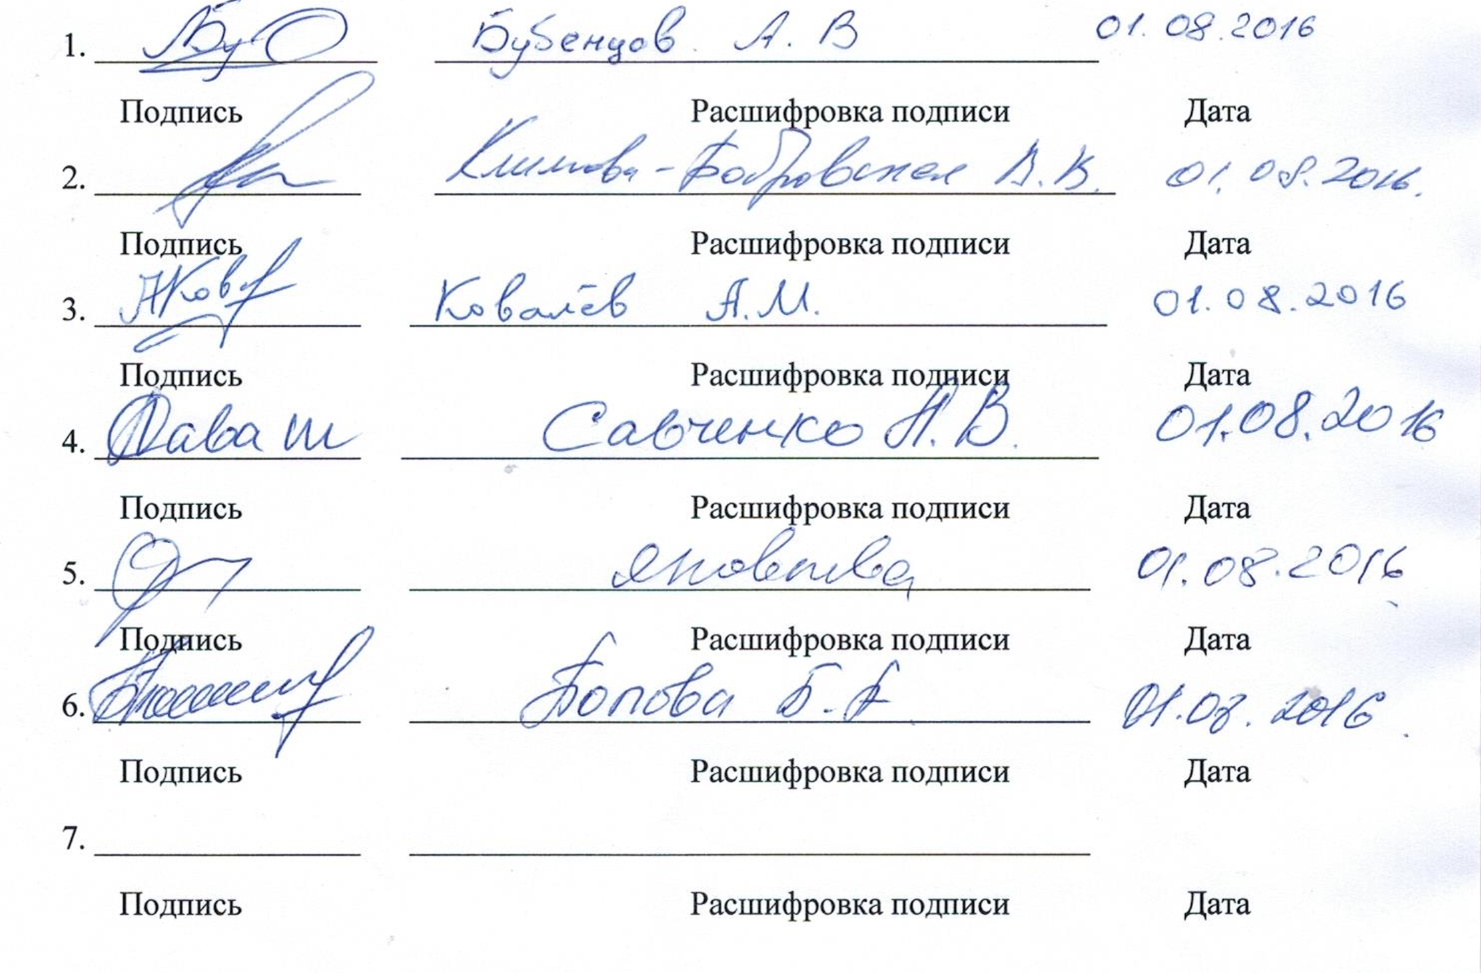 1. Бубенцов А. В 01.08.2016
Подпись Расшифровка подписи Дата
2. Климова-Бобровская В.В. 01.08.2016.
Подпись Расшифровка подписи Дата
3. АКов Ковалёв А.М. 01.08.2016
Подпись Расшифровка подписи Дата
4. Савченко Н.В. 01.08.2016
Подпись Расшифровка подписи Дата
5. 01.08.2016
Подпись Расшифровка подписи Дата
6. Попова Б.А. 01.08.2016.
Подпись Расшифровка подписи Дата
7.
Подпись Расшифровка подписи Дата